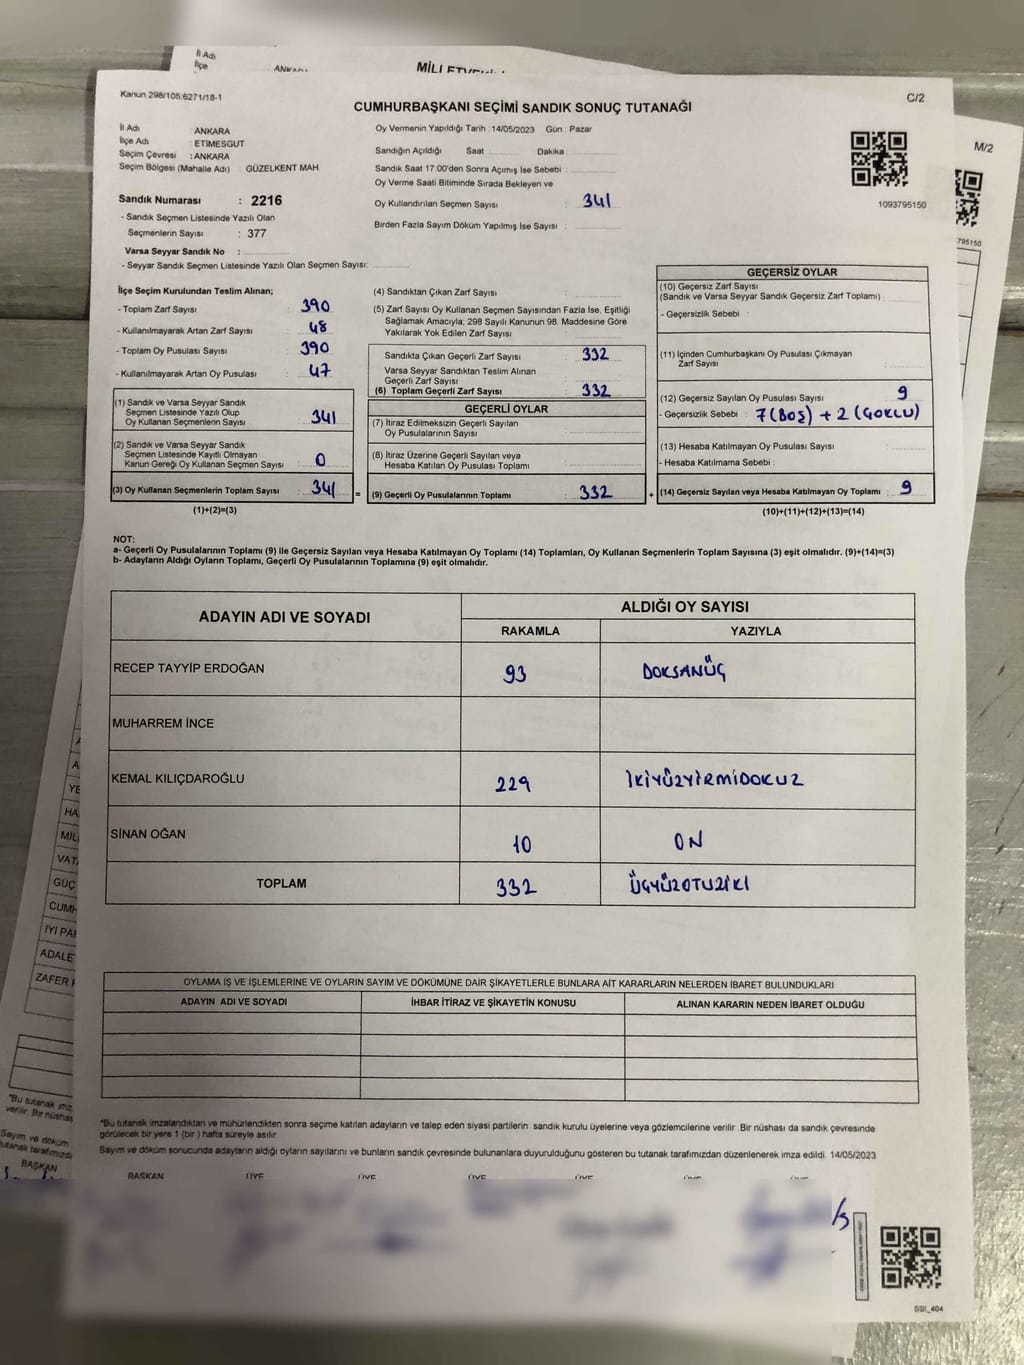 İl Adı
İlçe
ANKARA
Kanun 298/105,6271/18-1
C/2
CUMHURBAŞKANI SEÇİMİ SANDIK SONUÇ TUTANAĞI
M/2
İl Adı ANKARA
İlçe Adı : ETİMESGUT
Seçim Çevresi : ANKARA
Seçim Bölgesi (Mahalle Adı) : GÜZELKENT MAH.
Oy Vermenin Yapıldığı Tarih :14/05/2023 Gün : Pazar
Sandığın Açıldığı Saat Dakika
Sandık Saat 17.00'den Sonra Açımış İse Sebebi :
Oy Verme Saati Bitiminde Sırada Bekleyen ve
Oy Kullandırılan Seçmen Sayısı : 341
Birden Fazla Sayım Döküm Yapılmış İse Sayısı :
1093795150
795150
Sandık Numarası : 2216
- Sandık Seçmen Listesinde Yazılı Olan
Seçmenlerin Sayısı : 377
Varsa Seyyar Sandık No :
- Seyyar Sandık Seçmen Listesinde Yazılı Olan Seçmen Sayısı:
İlçe Seçim Kurulundan Teslim Alınan;
- Toplam Zarf Sayısı : 390
- Kullanılmayarak Artan Zarf Sayısı : 48
- Toplam Oy Pusulası Sayısı : 390
- Kullanılmayarak Artan Oy Pusulası : 47
(1) Sandık ve Varsa Seyyar Sandık
Seçmen Listesinde Yazılı Olup
Oy Kullanan Seçmenlerin Sayısı : 341
(2) Sandık ve Varsa Seyyar Sandık
Seçmen Listesinde Kayıtlı Olmayan
Kanun Gereği Oy Kullanan Seçmen Sayısı : 0
(3) Oy Kullanan Seçmenlerin Toplam Sayısı : 341 =
(1)+(2)=(3)
(4) Sandıktan Çıkan Zarf Sayısı :
(5) Zarf Sayısı Oy Kullanan Seçmen Sayısından Fazla İse, Eşitliği
Sağlamak Amacıyla; 298 Sayılı Kanunun 98. Maddesine Göre
Yakılarak Yok Edilen Zarf Sayısı :
Sandıkta Çıkan Geçerli Zarf Sayısı : 332
Varsa Seyyar Sandıktan Teslim Alınan
Geçerli Zarf Sayısı :
(6) Toplam Geçerli Zarf Sayısı : 332
GEÇERLİ OYLAR
(7) İtiraz Edilmeksizin Geçerli Sayılan
Oy Pusulalarının Sayısı :
(8) İtiraz Üzerine Geçerli Sayılan veya
Hesaba Katılan Oy Pusulası Toplamı :
(9) Geçerli Oy Pusulalarının Toplamı : 332 +
GEÇERSİZ OYLAR
(10) Geçersiz Zarf Sayısı
(Sandık ve Varsa Seyyar Sandık Geçersiz Zarf Toplamı) :
- Geçersizlik Sebebi :
(11) İçinden Cumhurbaşkanı Oy Pusulası Çıkmayan
Zarf Sayısı :
(12) Geçersiz Sayılan Oy Pusulası Sayısı : 9
- Geçersizlik Sebebi : 7 (BOŞ) + 2 (ÇOKLU)
(13) Hesaba Katılmayan Oy Pusulası Sayısı :
- Hesaba Katılmama Sebebi :
(14) Geçersiz Sayılan veya Hesaba Katılmayan Oy Toplamı : 9
(10)+(11)+(12)+(13)=(14)
NOT:
a- Geçerli Oy Pusulalarının Toplamı (9) ile Geçersiz Sayılan veya Hesaba Katılmayan Oy Toplamı (14) Toplamları, Oy Kullanan Seçmenlerin Toplam Sayısına (3) eşit olmalıdır. (9)+(14)=(3)
b- Adayların Aldığı Oyların Toplamı, Geçerli Oy Pusulalarının Toplamına (9) eşit olmalıdır.
ADAYIN ADI VE SOYADI
ALDIĞI OY SAYISI
RAKAMLA YAZIYLA
RECEP TAYYİP ERDOĞAN 93 DOKSANÜÇ
MUHARREM İNCE
KEMAL KILIÇDAROĞLU 229 İKİYÜZYİRMİDOKUZ
SİNAN OĞAN 10 ON
TOPLAM 332 ÜÇYÜZOTUZİKİ
YE
HA
MİL
VATA
GÜÇ
CUMH
İYİ PAR
ADALE
ZAFER P
OYLAMA İŞ VE İŞLEMLERİNE VE OYLARIN SAYIM VE DÖKÜMÜNE DAİR ŞİKAYETLERLE BUNLARA AİT KARARLARIN NELERDEN İBARET BULUNDUKLARI
ADAYIN ADI VE SOYADI İHBAR İTİRAZ VE ŞİKAYETİN KONUSU ALINAN KARARIN NEDEN İBARET OLDUĞU
*Bu tutanak imzalandıktan ve mühürlendikten sonra seçime katılan adayların ve talep eden siyasi partilerin sandık kurulu üyelerine veya gözlemcilerine verilir. Bir nüshası da sandık çevresinde
görülecek bir yere 1 (bir ) hafta süreyle asılır.
Sayım ve döküm sonucunda adayların aldığı oyların sayılarını ve bunların sandık çevresinde bulunanlara duyurulduğunu gösteren bu tutanak tarafımızdan düzenlenerek imza edildi. 14/05/2023
BAŞKAN ÜYE ÜYE ÜYE ÜYE ÜYE ÜYE
*Bu tutanak imz
verilir. Bir nüshas
Sayım ve döküm
tutanak tarafımızda
BAŞKAN